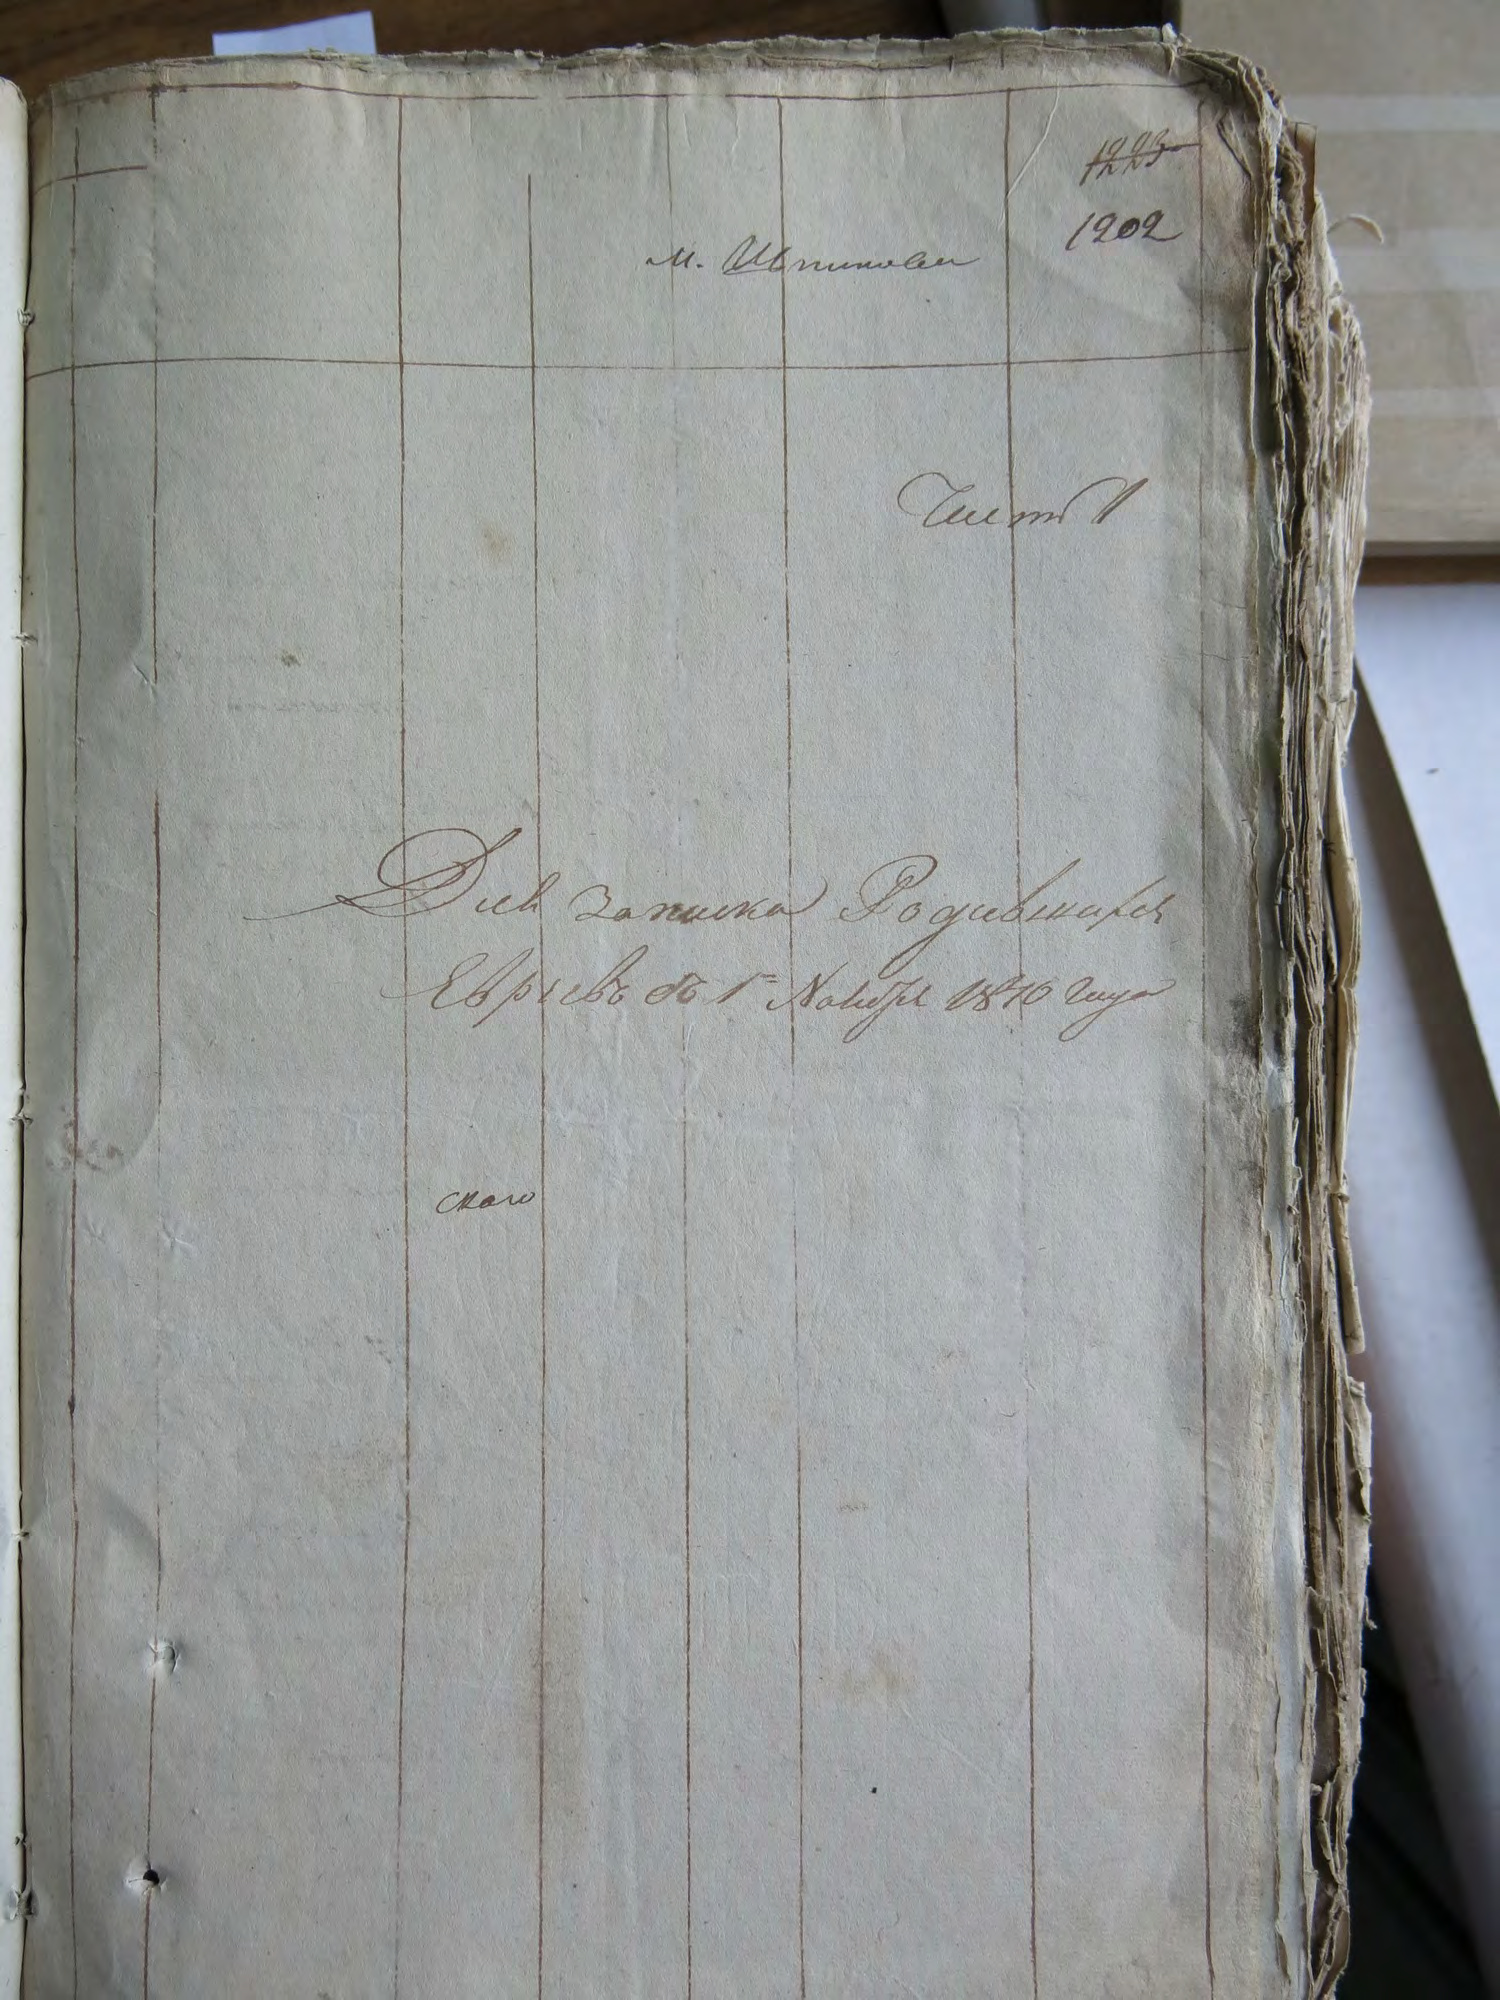 1223
1202
м. Шпиковъ
Часть I
Для записки Родившихся
Евреевъ съ 1го Ноября 1840 года
ского